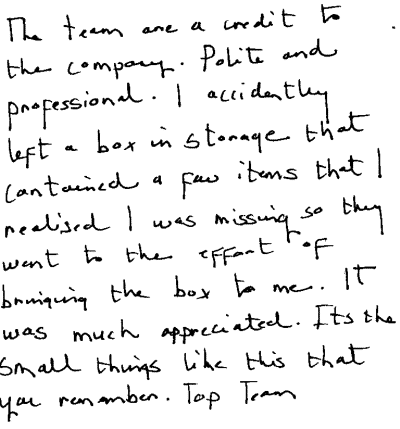 The team are a credit to
the company. Polite and
professional. I accidently
left a box in storage that
contained a few items that I
realised I was missing so they
went to the effort of
bringing the box to me. It
was much appreciated. Its the
small things like this that
you remember. Top Team